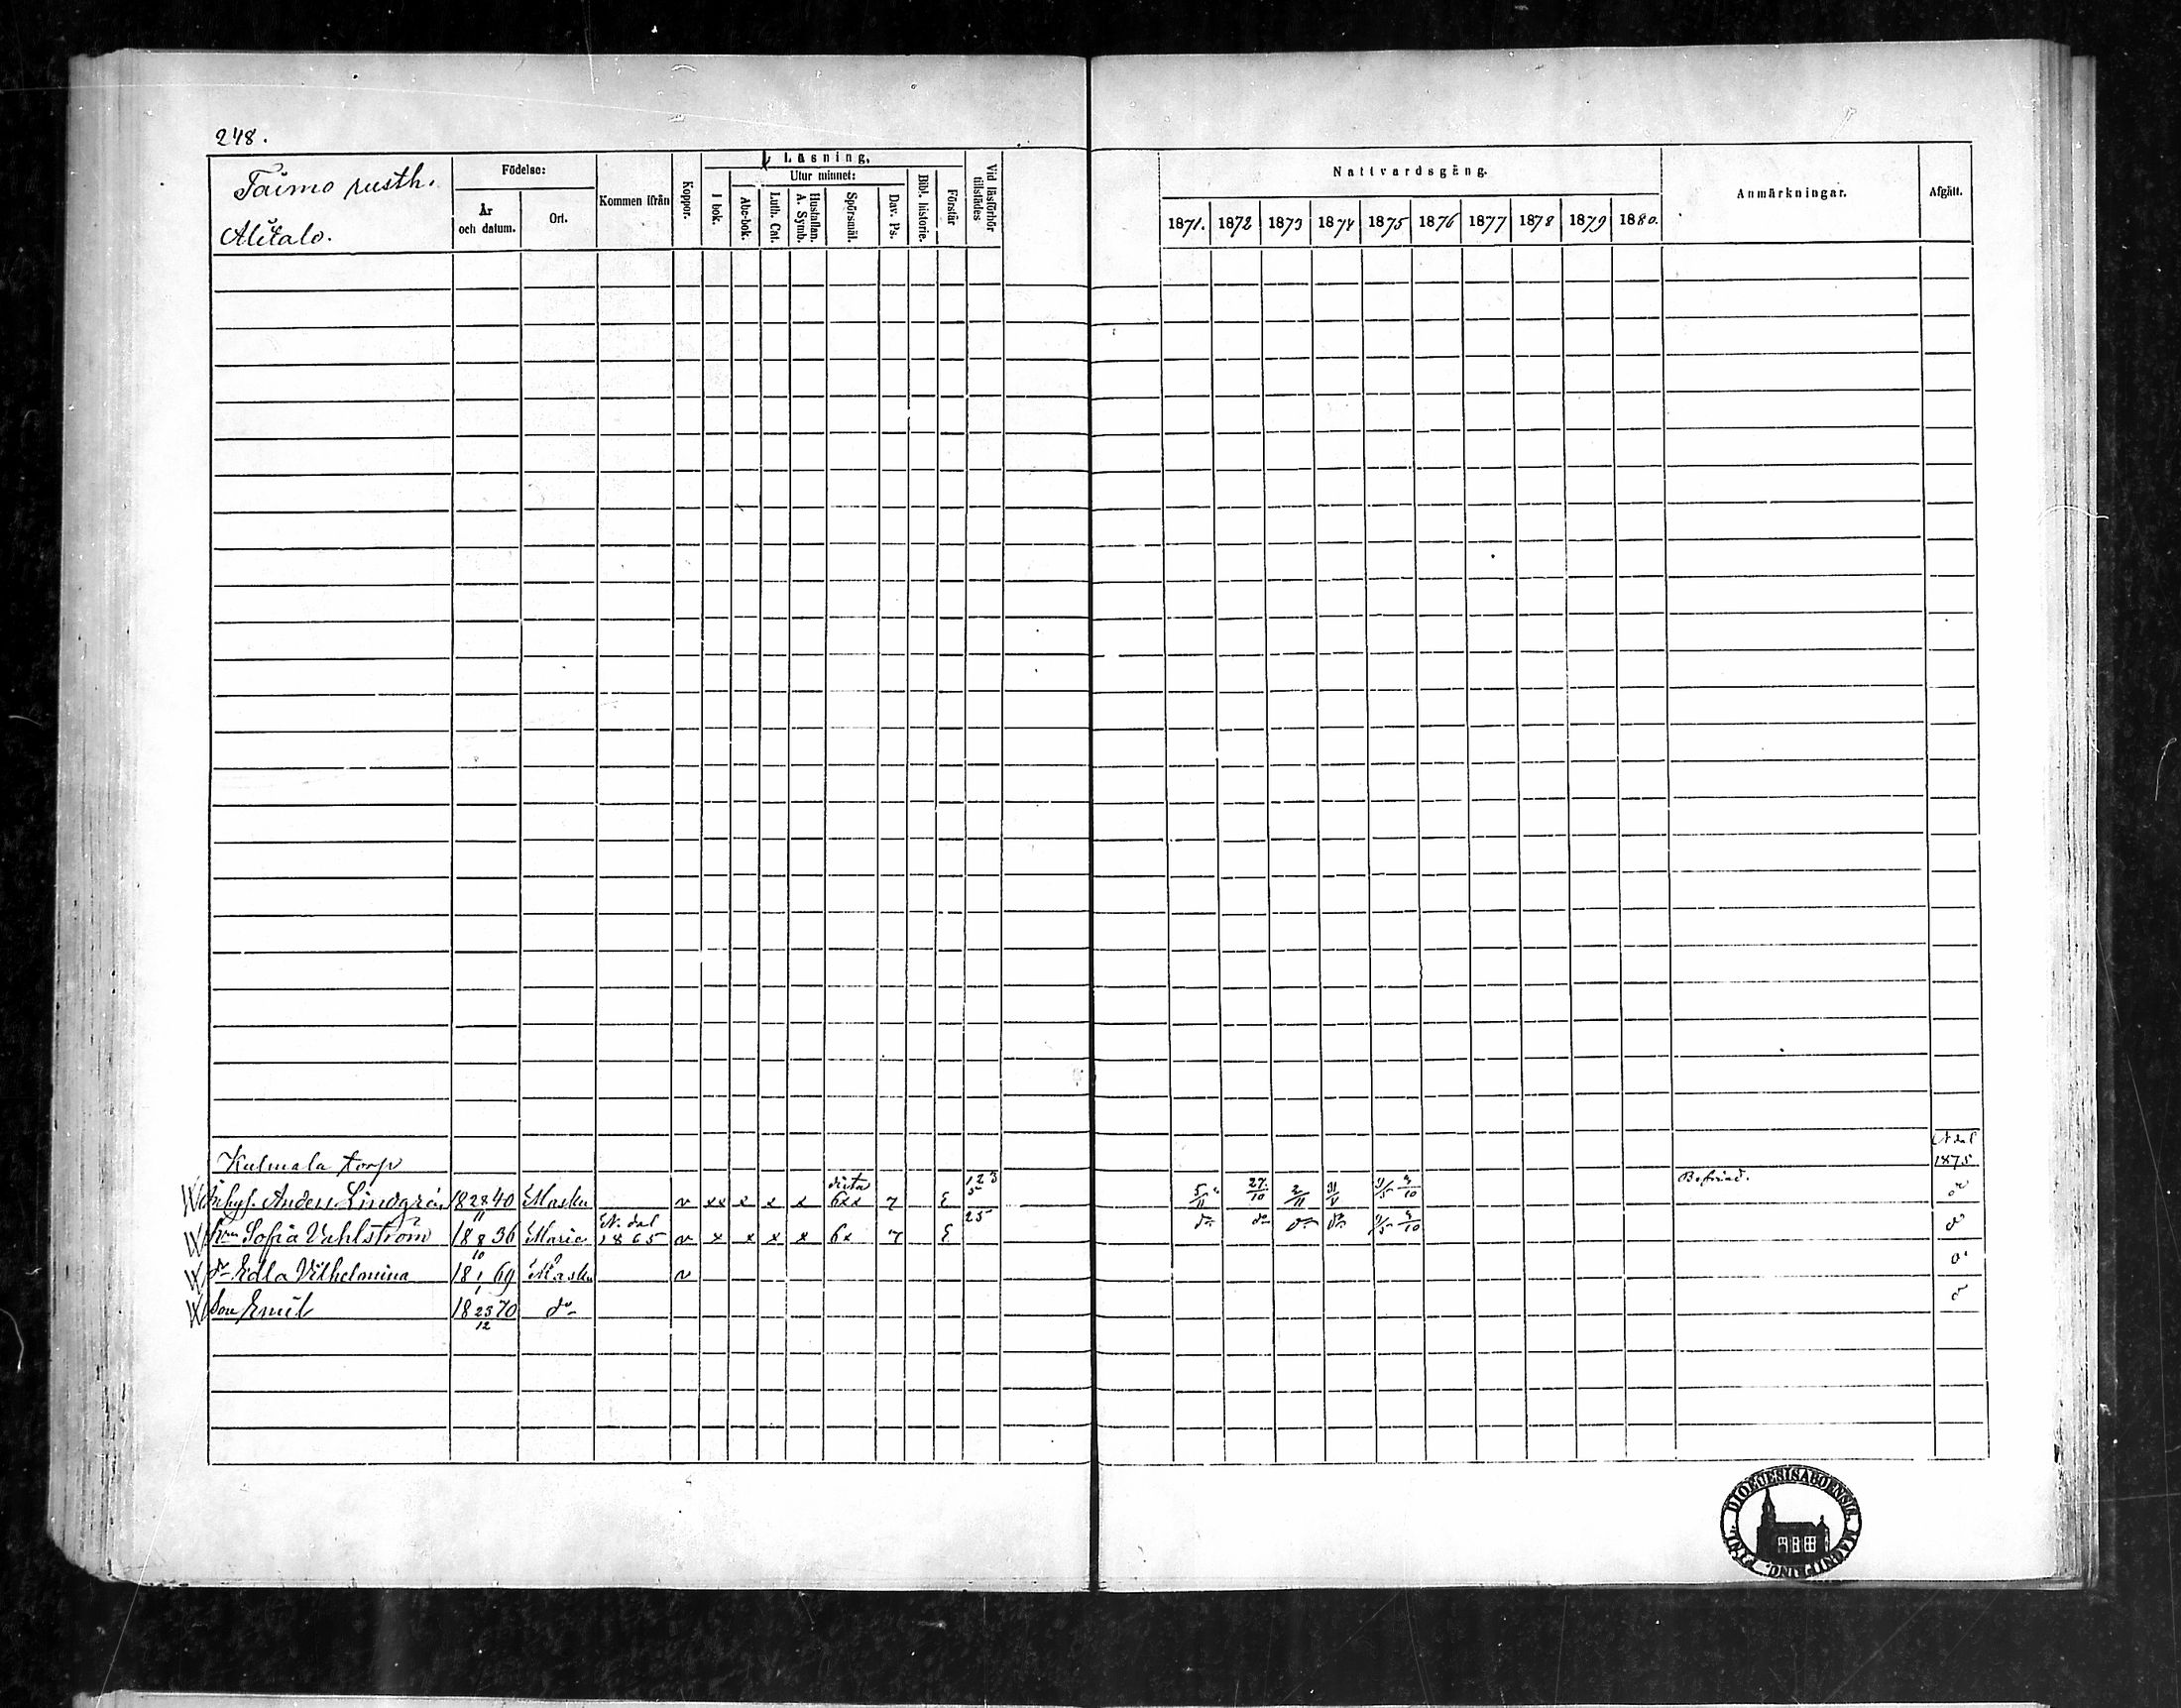 248.
Taimo rusth.
Alitalo.
Födelse:
År och datum.
Ort.
Kommen ifrån
Koppor.
Läsning.
I bok.
Utur minnet:
Abc-bok.
Luth. Cat.
Hustaflan. A. Symb.
Spörsmål.
Dav. Ps.
Bibl. historie.
Förstår
Vid läsförhör tillstädes
Nattvardsgång.
1871. 1872 1873 1874 1875 1876 1877 1878 1879 1880.
Anmärkningar.
Afgått.
Kulmala torp
N dal 1875
Anders Lindgren 18 28/11 40 Masku v xx x x x 6xx 7 E 1 2 3 5 5/11 27/10 2/11 31/5 4/10
Sofia Vahlström 18 8/10 36 Marie N. dal 1865 v x x x x 6x 7 E 25 do do do do 9/5 4/10
do Edla Vilhelmina 18 1/1 69 Masku v
Son Emil 18 23/12 70 do